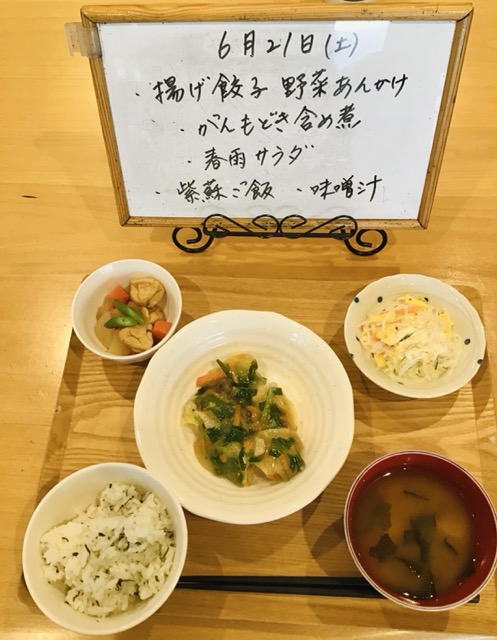 6月21日(土)
・揚げ餃子 野菜あんかけ
・がんもどき含め煮
・春雨サラダ
・紫蘇ご飯 ・味噌汁